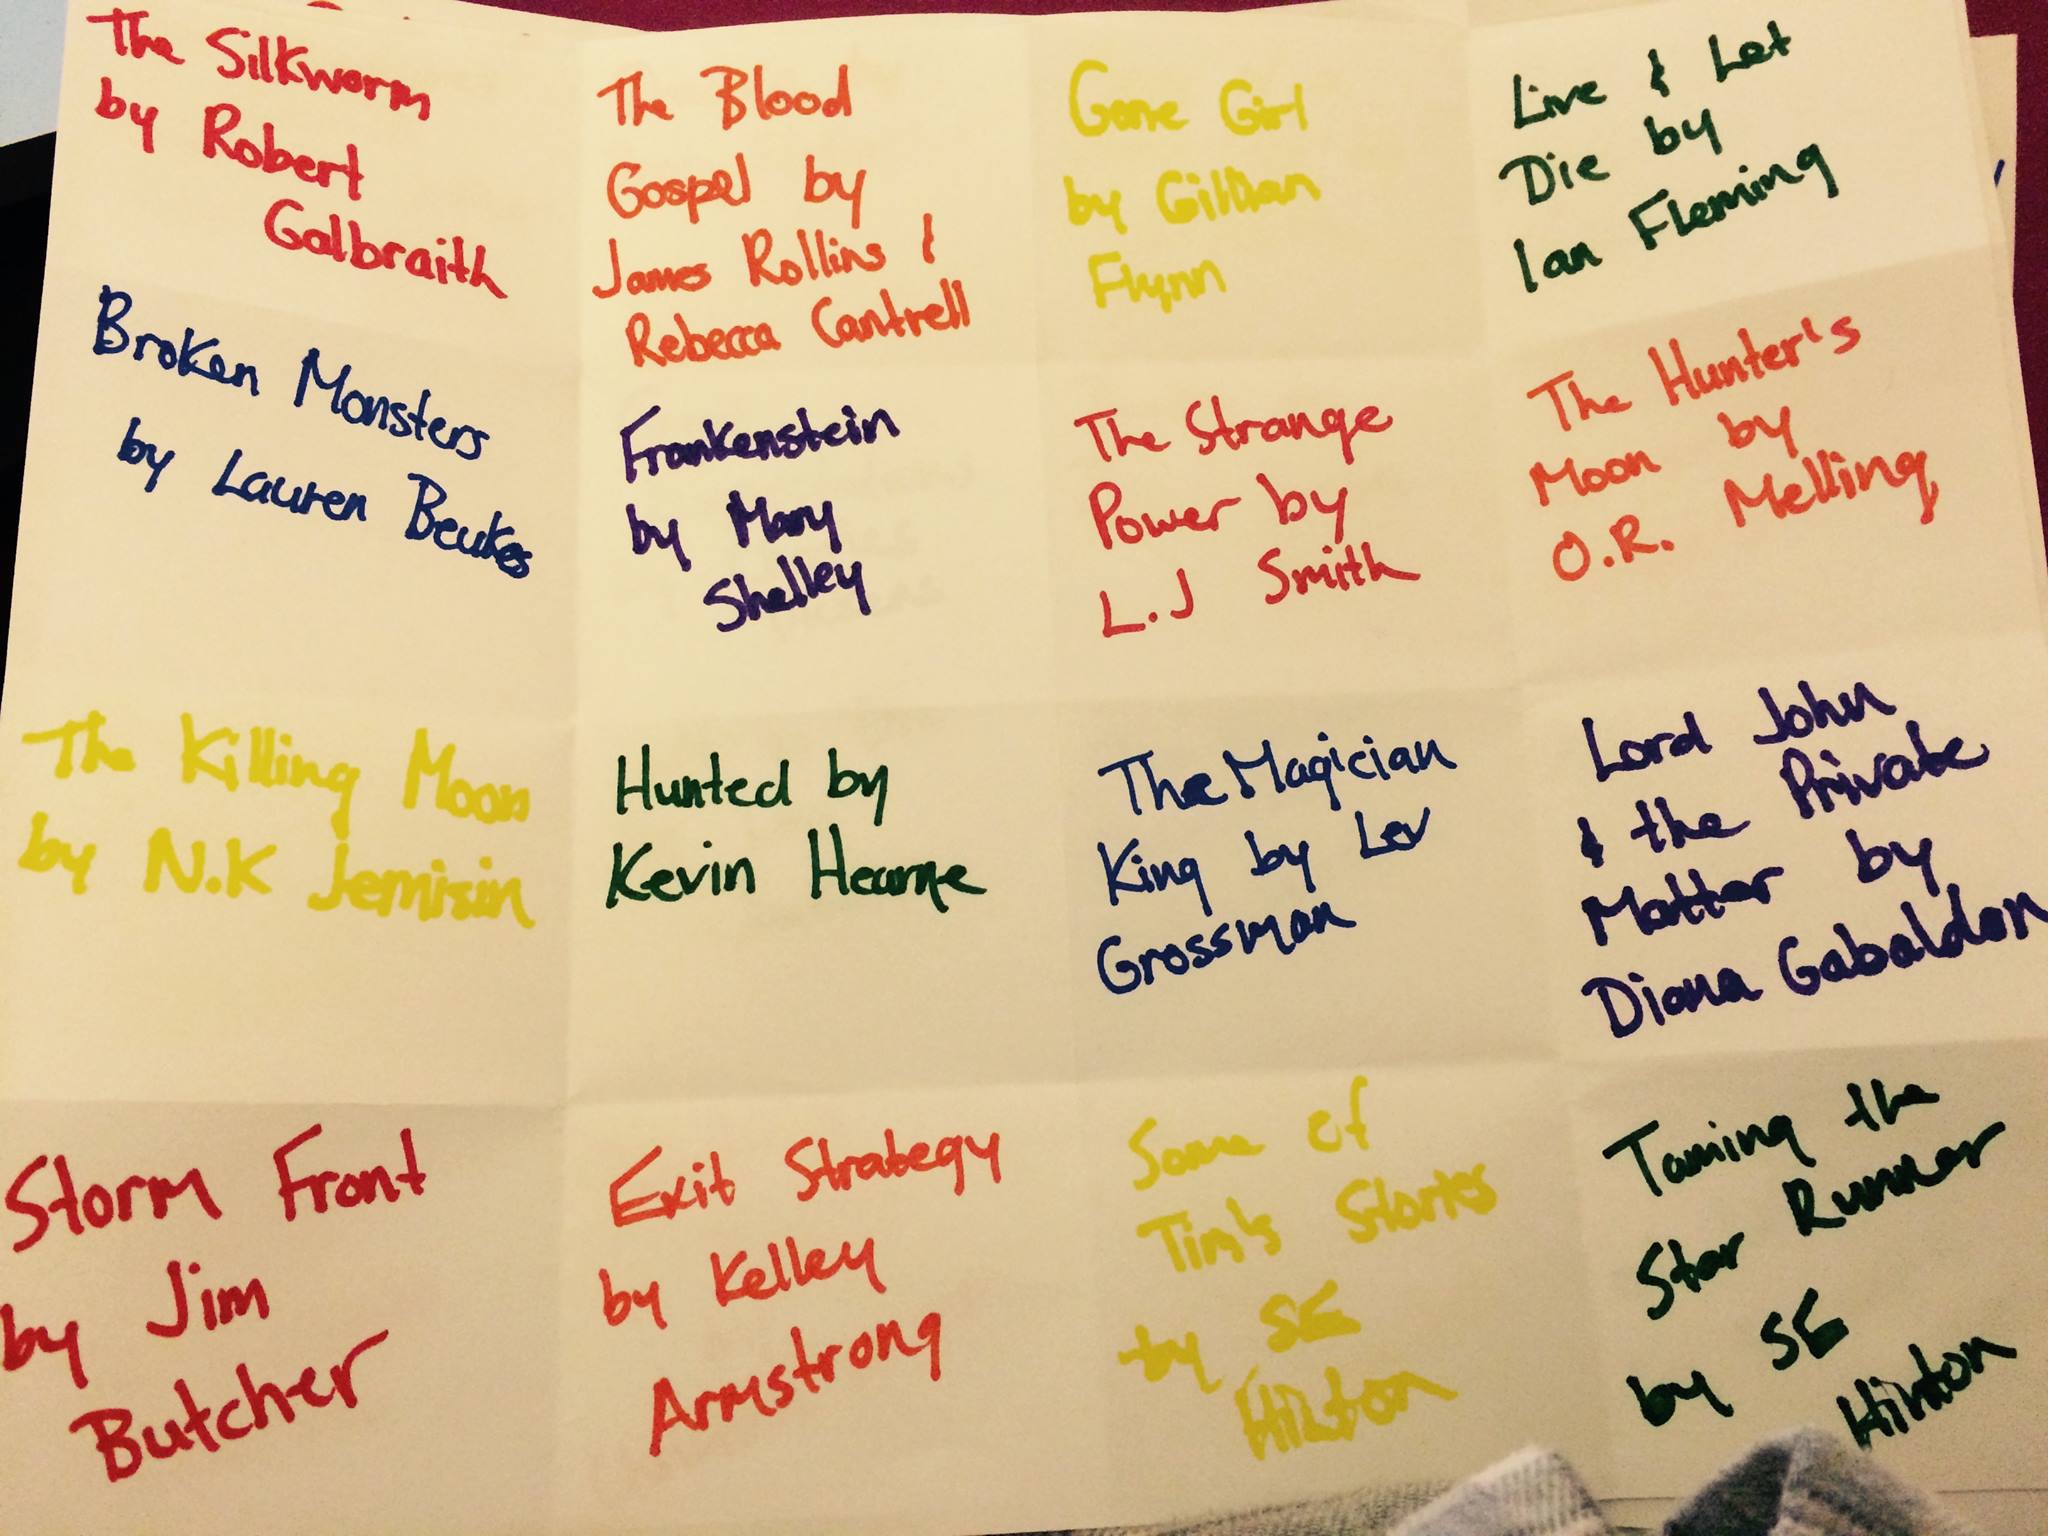 The Silkworm
by Robert
Galbraith
The Blood
Gospel by
James Rollins &
Rebecca Cantrell
Gone Girl
by Gillian
Flynn
Live & Let
Die by
Ian Fleming
Broken Monsters
by Lauren Beukes
Frankenstein
by Mary
Shelley
The Strange
Power by
L.J Smith
The Hunter's
Moon by
O.R. Melling
The Killing Moon
by N.K Jemisin
Hunted by
Kevin Hearne
The Magician
King by Lev
Grossman
Lord John
& the Private
Matter by
Diana Gabaldon
Storm Front
by Jim
Butcher
Exit Strategy
by Kelley
Armstrong
Some of
Tim's Stories
by SE
Hinton
Taming the
Star Runner
by SE
Hinton